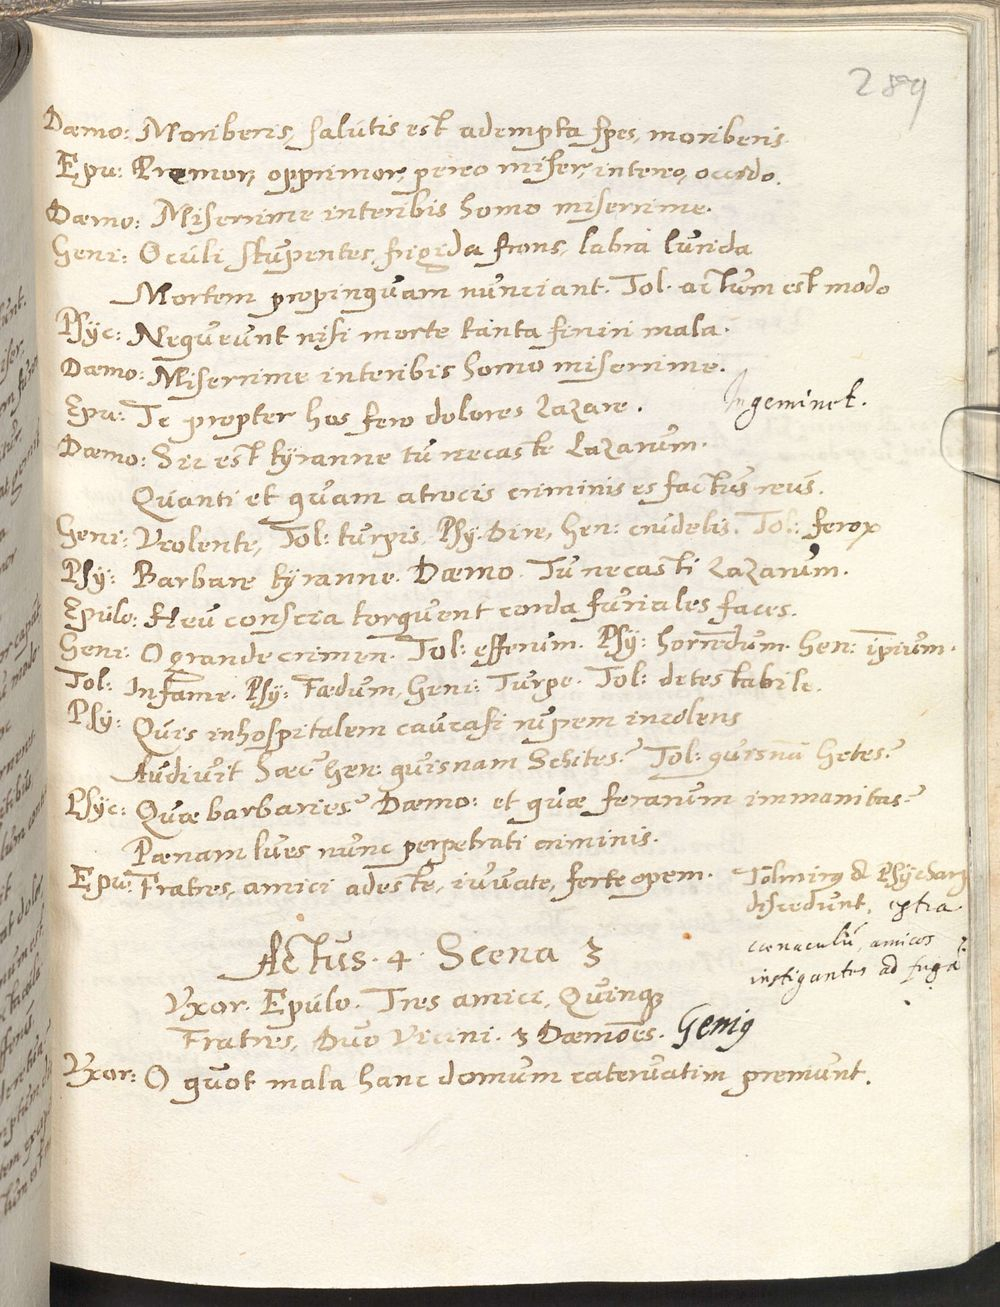 289
Dæmo: Moriberis, salutis est adempta spes, moriberis.
Epu: Premor, opprimor, pereo miser, intereo, occido.
Dæmo: Miserrime interibis homo miserrime.
Geni: Oculi stupentes, frigida frons, labra lurida
Mortem propinquam nunciant. Tol. actum est modo
Psyc: Nequeunt nisi morte tanta finiri mala.
Dæmo: Miserrime interibis homo miserrime.
Ingeminet.
Epu: Te propter hos fero dolores Lazare.
Dæmo: Sic est tyranne tu necaste Lazarum.
Quanti et quam atrocis criminis es factus reus.
Geni: Violente, Tol: turpis, Psy. Dire, Gen: crudelis. Tol: ferox
Psy: Barbare tyranne. Dæmo. Tu necasti Lazarum.
Epulo: Heu conscia torquent corda furiales faces.
Geni: O grande crimen. Tol: efferum. Psy: horrēdum. Gen: īpium.
Tol: Infame. Psy: Fædum, Geni: Turpe. Tol: detestabile.
Psy: Quis inhospitalem caucasi rupem incolens
Audivit hæc? Gen: quisnam Schites? Tol: quisnā Getes?
Psyc: Quæ barbaries? Dæmo: et quæ ferarum immanitas?
Pœnam lues nunc perpetrati criminis.
Epu: Fratres, amici adeste, iuvate, ferte opem.
Tolmirus & Psycharg
discedunt, extra
cœnaculū, amicos
instigantes ad fugā
Actus. 4. Scena 3
Vxor. Epulo. Tres amici, Quinq3
Fratres, Duo Vicini. 3 Dæmoēs. Geni9
Vxor: O quot mala hanc domum catervatim premunt.